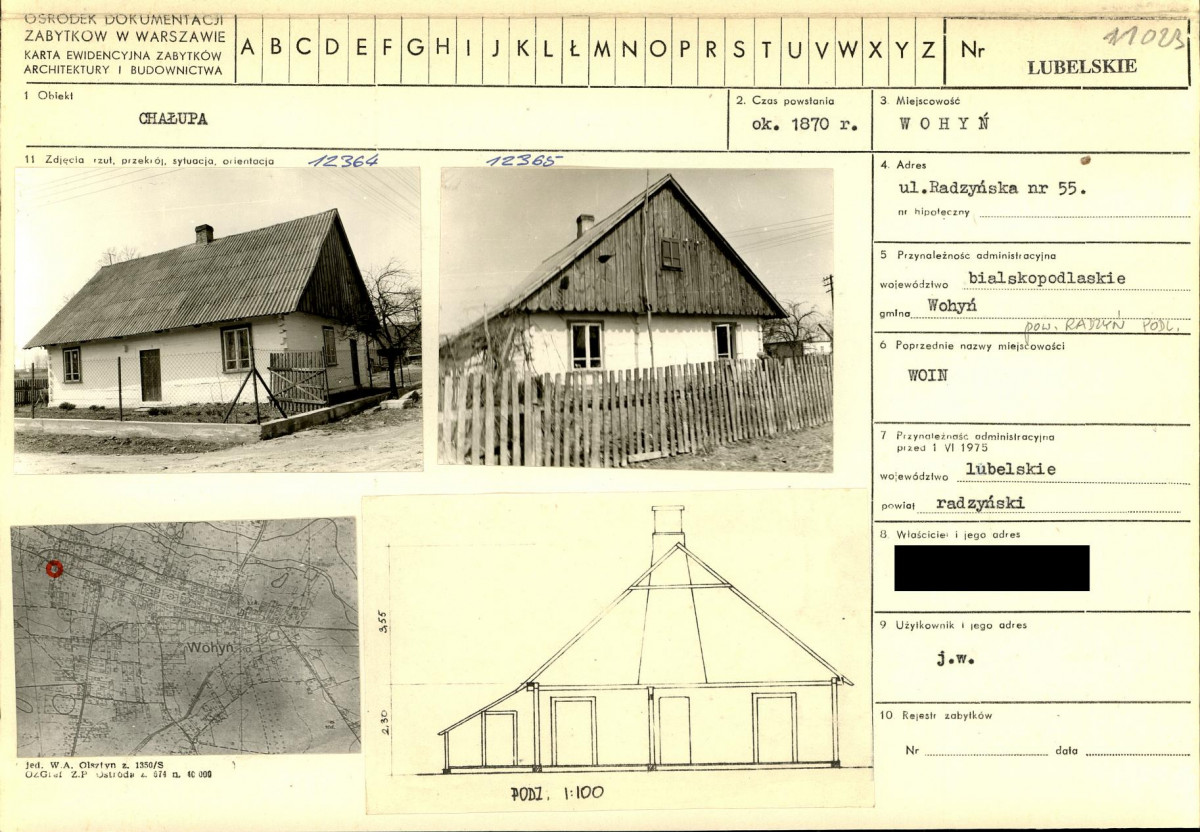 OŚRODEK DOKUMENTACJI
ZABYTKÓW W WARSZAWIE
KARTA EWIDENCYJNA ZABYTKÓW
ARCHITEKTURY I BUDOWNICTWA
A B C D E F G H I J K L Ł M N O P R S T U V W X Y Z
Nr
11023
LUBELSKIE
1 Obiekt
CHAŁUPA
2. Czas powstania
ok. 1870 r.
3. Miejscowość
WOHYŃ
11 Zdjęcia rzut, przekrój, sytuacja, orientacja
12364
12365
4. Adres
ul.Radzyńska nr 55.
nr hipoteczny
5 Przynależność administracyjna
województwo bialskopodlaskie
gmina Wohyń
pow. RADZYŃ PODL.
6 Poprzednie nazwy miejscowości
WOIN
7 Przynależność administracyjna
przed 1 VI 1975
województwo lubelskie
powiat radzyński
8. Właściciel i jego adres
9 Użytkownik i jego adres
j.w.
10 Rejestr zabytków
Nr data
Wohyń
Jed. W.A. Olsztyn z. 1350/S
OZGraf Z.P Ostróda z. 674 n. 40 000
3,55
2,30
PODZ. 1:100